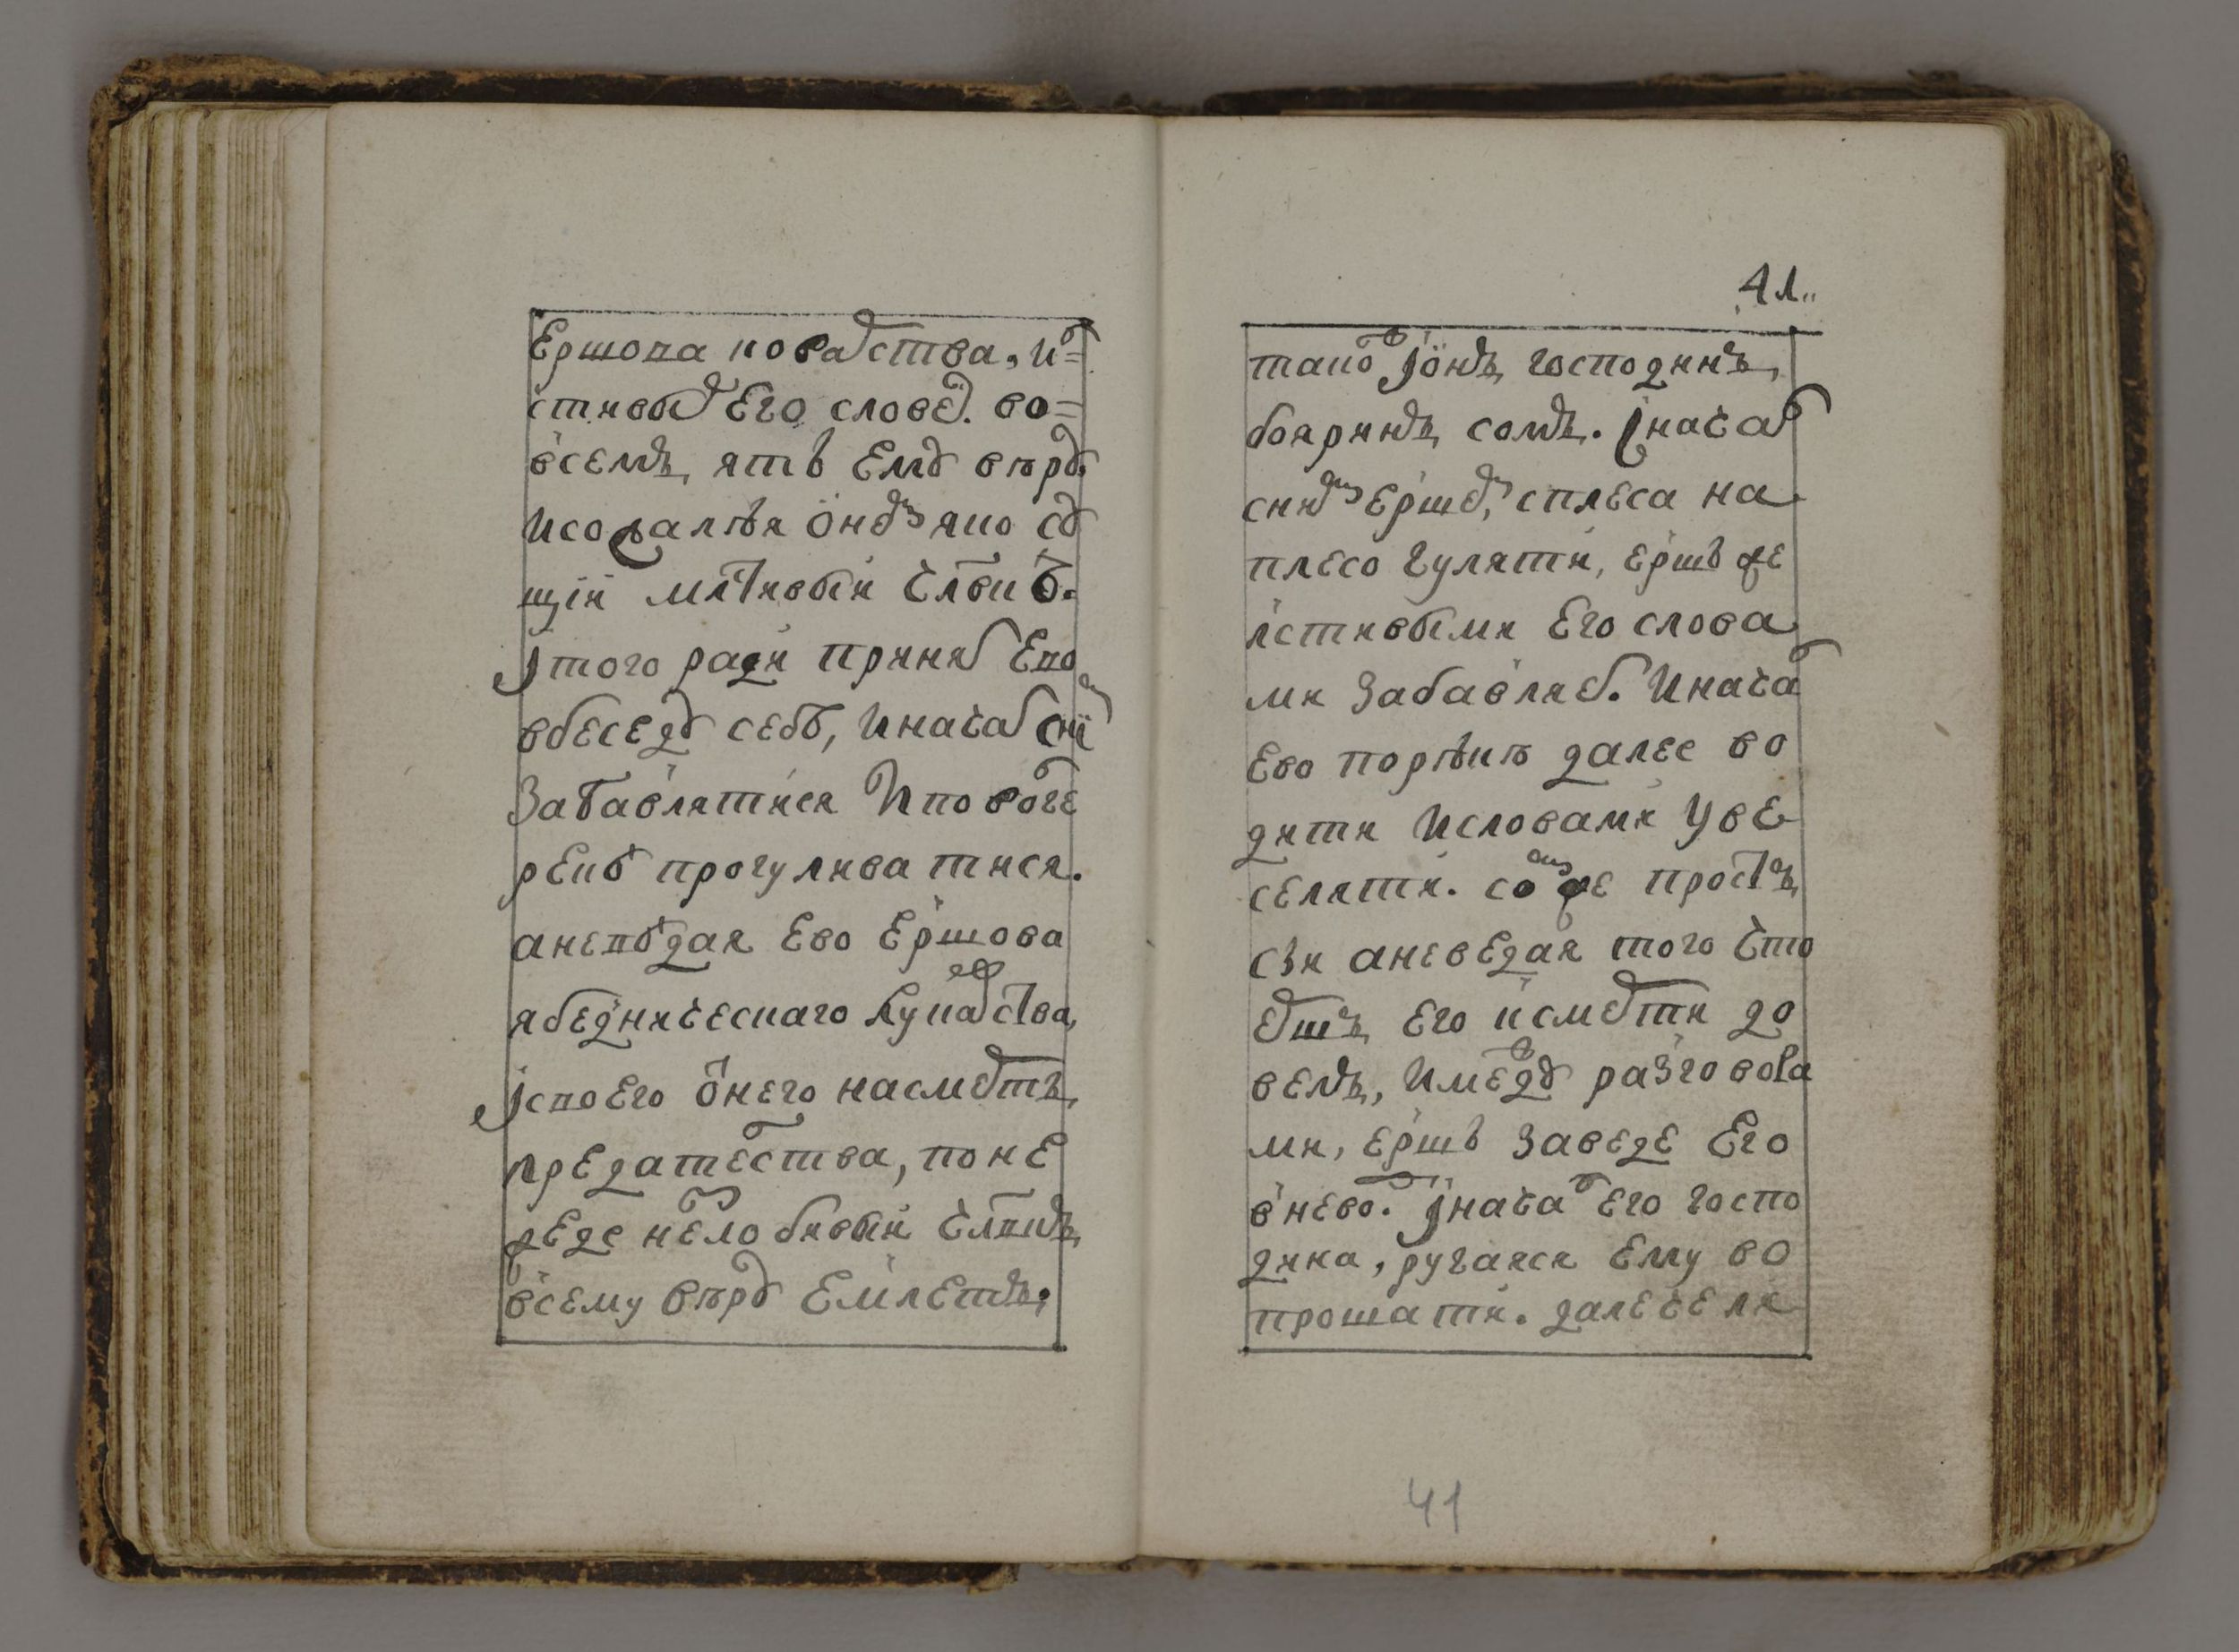 Ершова коварства, и=
стивых Его словех. во=
всемъ, ятъ Емꙋ вѣрꙋ.
исожалѣя онъ яко сꙋ
щїи млтивыи члвкъ.
Ітого ради приня Ево
вбеседꙋ себѣ, иначаша снї
Забавлятися Иповоге
рекѣ прогуливатися.
аневѣдая Ево Ершова
ябедническаго лукавства,
Ісвоего онего насмертъ,
предателства, поне
жеде нѣзлобивыи члвкъ,
всему вѣрꙋ Емлетъ.
41..
такоже Іонъ господинъ,
бояринъ сомъ. Іначат
снимъ Ершемъ, сплеса на
плесо гуляти, ершъ же
лстивыми Его слова
ми Забавляет. Иначат
Ево порѣкѣ далее во
дити Исловами Уве
селяти. сомъ же простъ
сыи аневедая того что
ершъ Его ксмерти до
ведъ, Имеждꙋ разговора
ми, ершъ заведе Его
вневод. Іначат Его госпо
дина, ругаяся Ему во
прошати. далечели
41